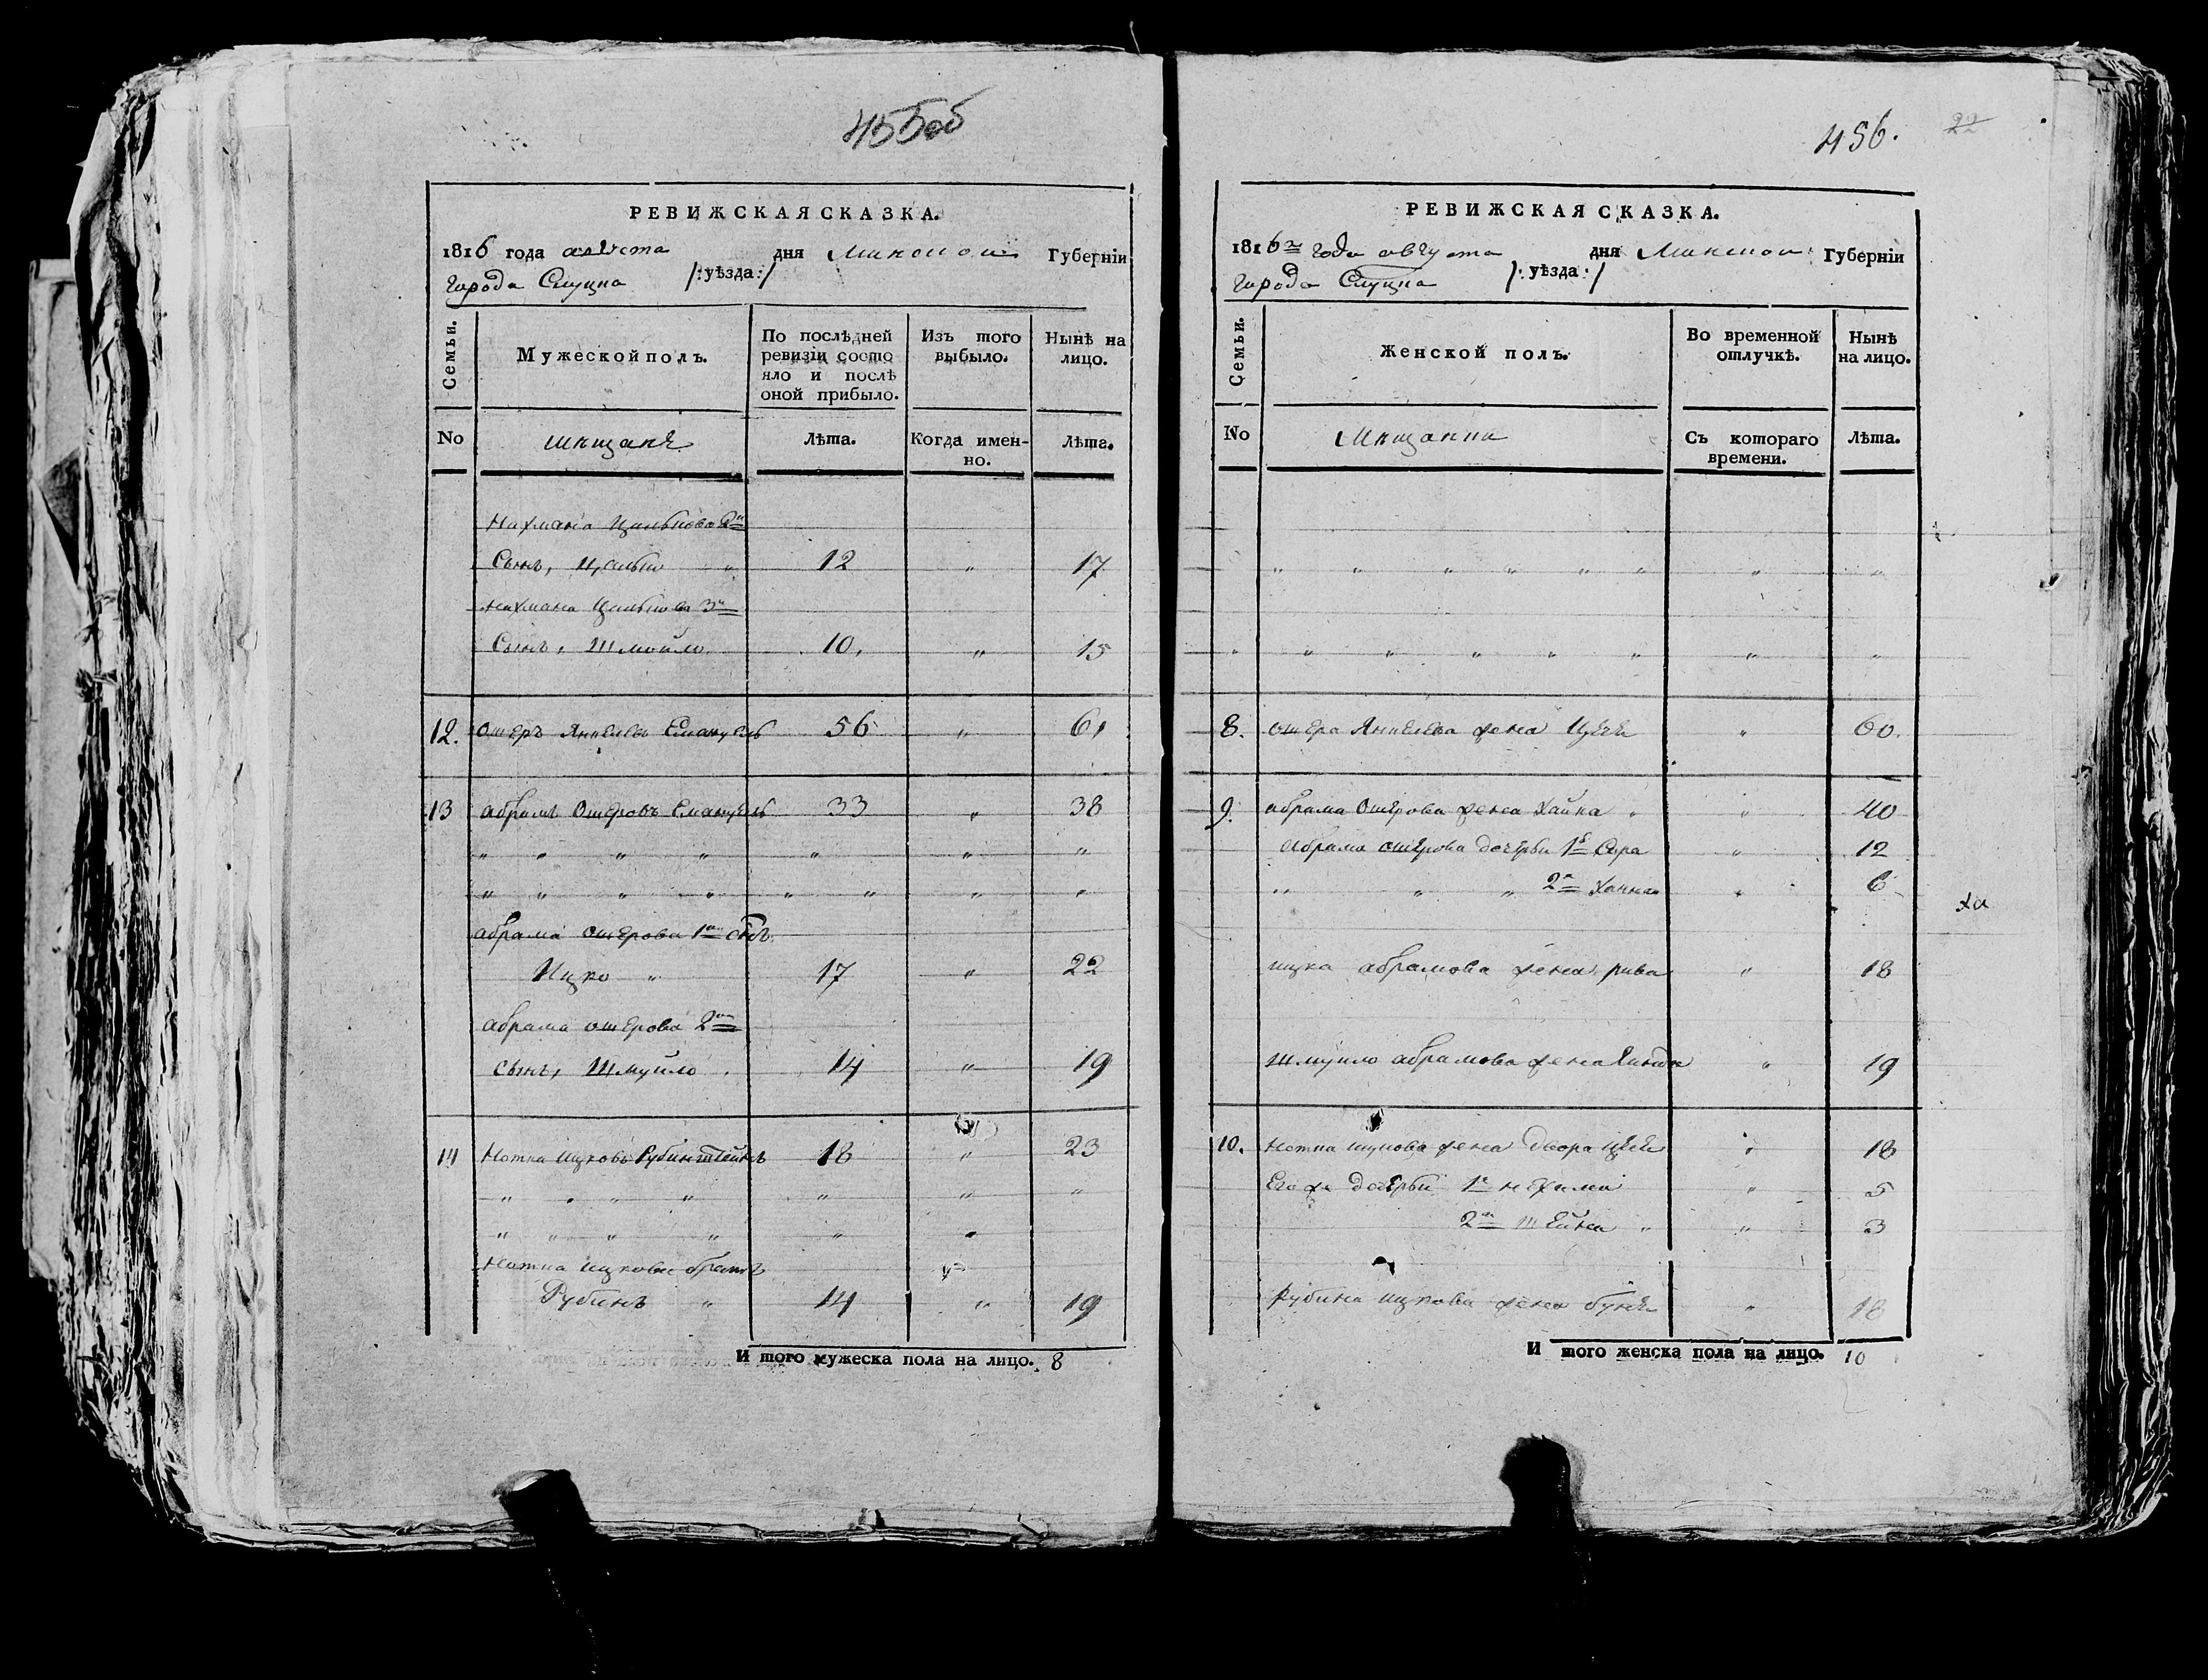 455об
РЕВИЖСКАЯ СКАЗКА.
1816 года августа дня Минской Губерніи
города Слуцка /:уѣзда:/
Семьи.
Мужеской полъ.
По послѣдней ревизіи состояло и послѣ оной прибыло.
Изъ того выбыло.
Нынѣ на лицо.
No
мещане
Лѣта.
Когда именно.
Лѣта.
Нахмана 2й
Сынъ, Цалко " 12 " 17
Нахмана 3й
Сынъ, Шмойло 10, " 15
12. Ошеръ Янкелевъ 56 " 61
13 абрамъ Ошеровъ 33 " 38
" " " " " " "
" " " " " " " "
абрама ошерова 1й сынъ
Ицко " 17 " 22
абрама ошерова 2й
сынъ, Шмуйло 14 " 19
14 Нотка Ицковъ Рубинштейнъ 18 " 23
" " " " " " "
" " " " " "
Нотка Ицкова братъ
Рубинъ " 14 " 19
И того мужеска пола на лицо. 8
456.
22
РЕВИЖСКАЯ СКАЗКА.
1816го года августа дня Минской Губерніи
города Слуцка /:уѣзда:/
Семьи.
Женской полъ.
Во временной отлучкѣ.
Нынѣ на лицо.
No
Мещанки
Съ котораго времени.
Лѣта.
" " " " " " " "
" " " " " " " "
8. Ошера Янкелева жена " 60.
9. абрама Ошерова жена Хайка " " 40
Абрама ошерова дочерьи 1я Сора " 12
" " " 2я Ханна " 6
ха
ицка абрамова жена рива " 18
Шмуйло абрамова жена " 19
10. Нотка ицкова жена Двора " 18
Его же дочерьи 1я нехама " 5
2я Шейна " " 3
Рубина ицкова жена " 18
И того женска пола на лицо. 10